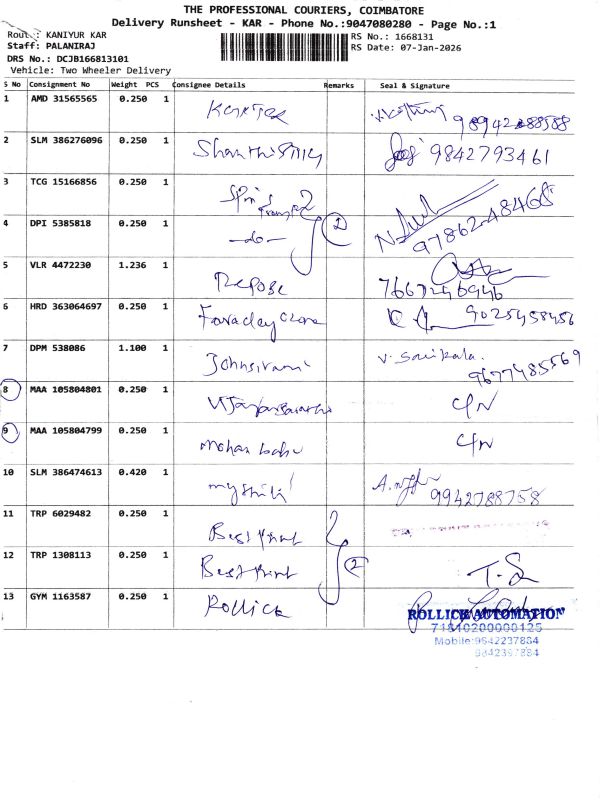 THE PROFESSIONAL COURIERS, COIMBATORE
Delivery Runsheet - KAR - Phone No.:9047080280 - Page No.:1
Route: KANIYUR KAR
RS No.: 1668131
Staff: PALANIRAJ
RS Date: 07-Jan-2026
DRS No.: DCJB166813101
Vehicle: Two Wheeler Delivery
S No Consignment No Weight PCS Consignee Details Remarks Seal & Signature
1 AMD 31565565 0.250 1
2 SLM 386276096 0.250 1 9842793461
3 TCG 15166856 0.250 1 97862-48468
4 DPI 5385818 0.250 1 -do- 2
5 VLR 4472230 1.236 1 Repose 7667246946
6 HRD 363064697 0.250 1 9025458456
7 DPM 538086 1.100 1 9677485569
8 MAA 105804801 0.250 1
9 MAA 105804799 0.250 1 Mohan babu
10 SLM 386474613 0.420 1 9942788758
11 TRP 6029482 0.250 1 Best Print
12 TRP 1308113 0.250 1 Best Print 2 T.S
13 GYM 1163587 0.250 1 Rollick
ROLLICK AUTOMATION
71810200000125
Mobile:9842237884